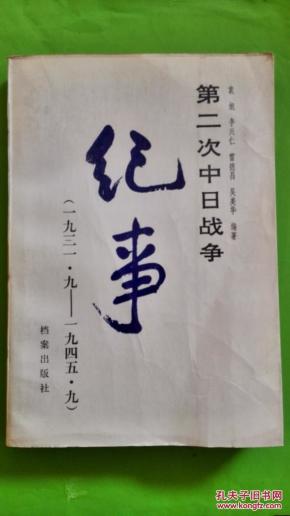 袁旭 李兴仁 雷德昌 吴美华 编著
第二次中日战争
纪事
(一九三一·九——一九四五·九)
档案出版社
孔夫子旧书网